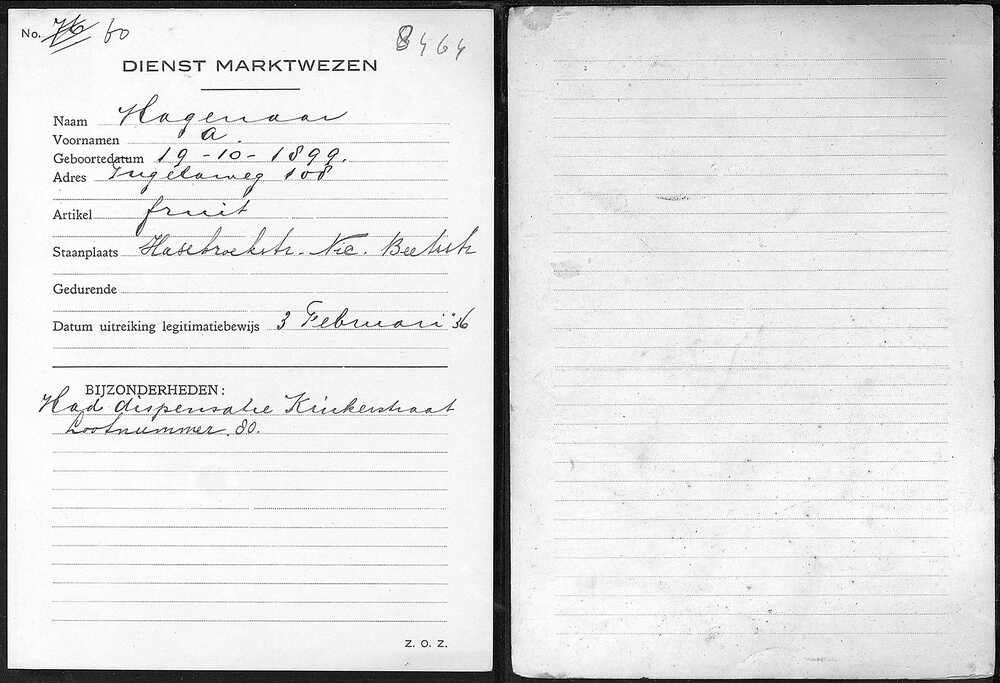 No. 76 60
8464
DIENST MARKTWEZEN
Naam Hagenaar
Voornamen A.
Geboortedatum 19-10-1899.
Adres Ingelaweg 108
Artikel fruit
Staanplaats Hasebroekstr. Nic. Beetsstr
Gedurende
Datum uitreiking legitimatiebewijs 3 Februari '36
BIJZONDERHEDEN:
Had dispensatie Kinkerstraat
Lootnummer 80.
Z. O. Z.